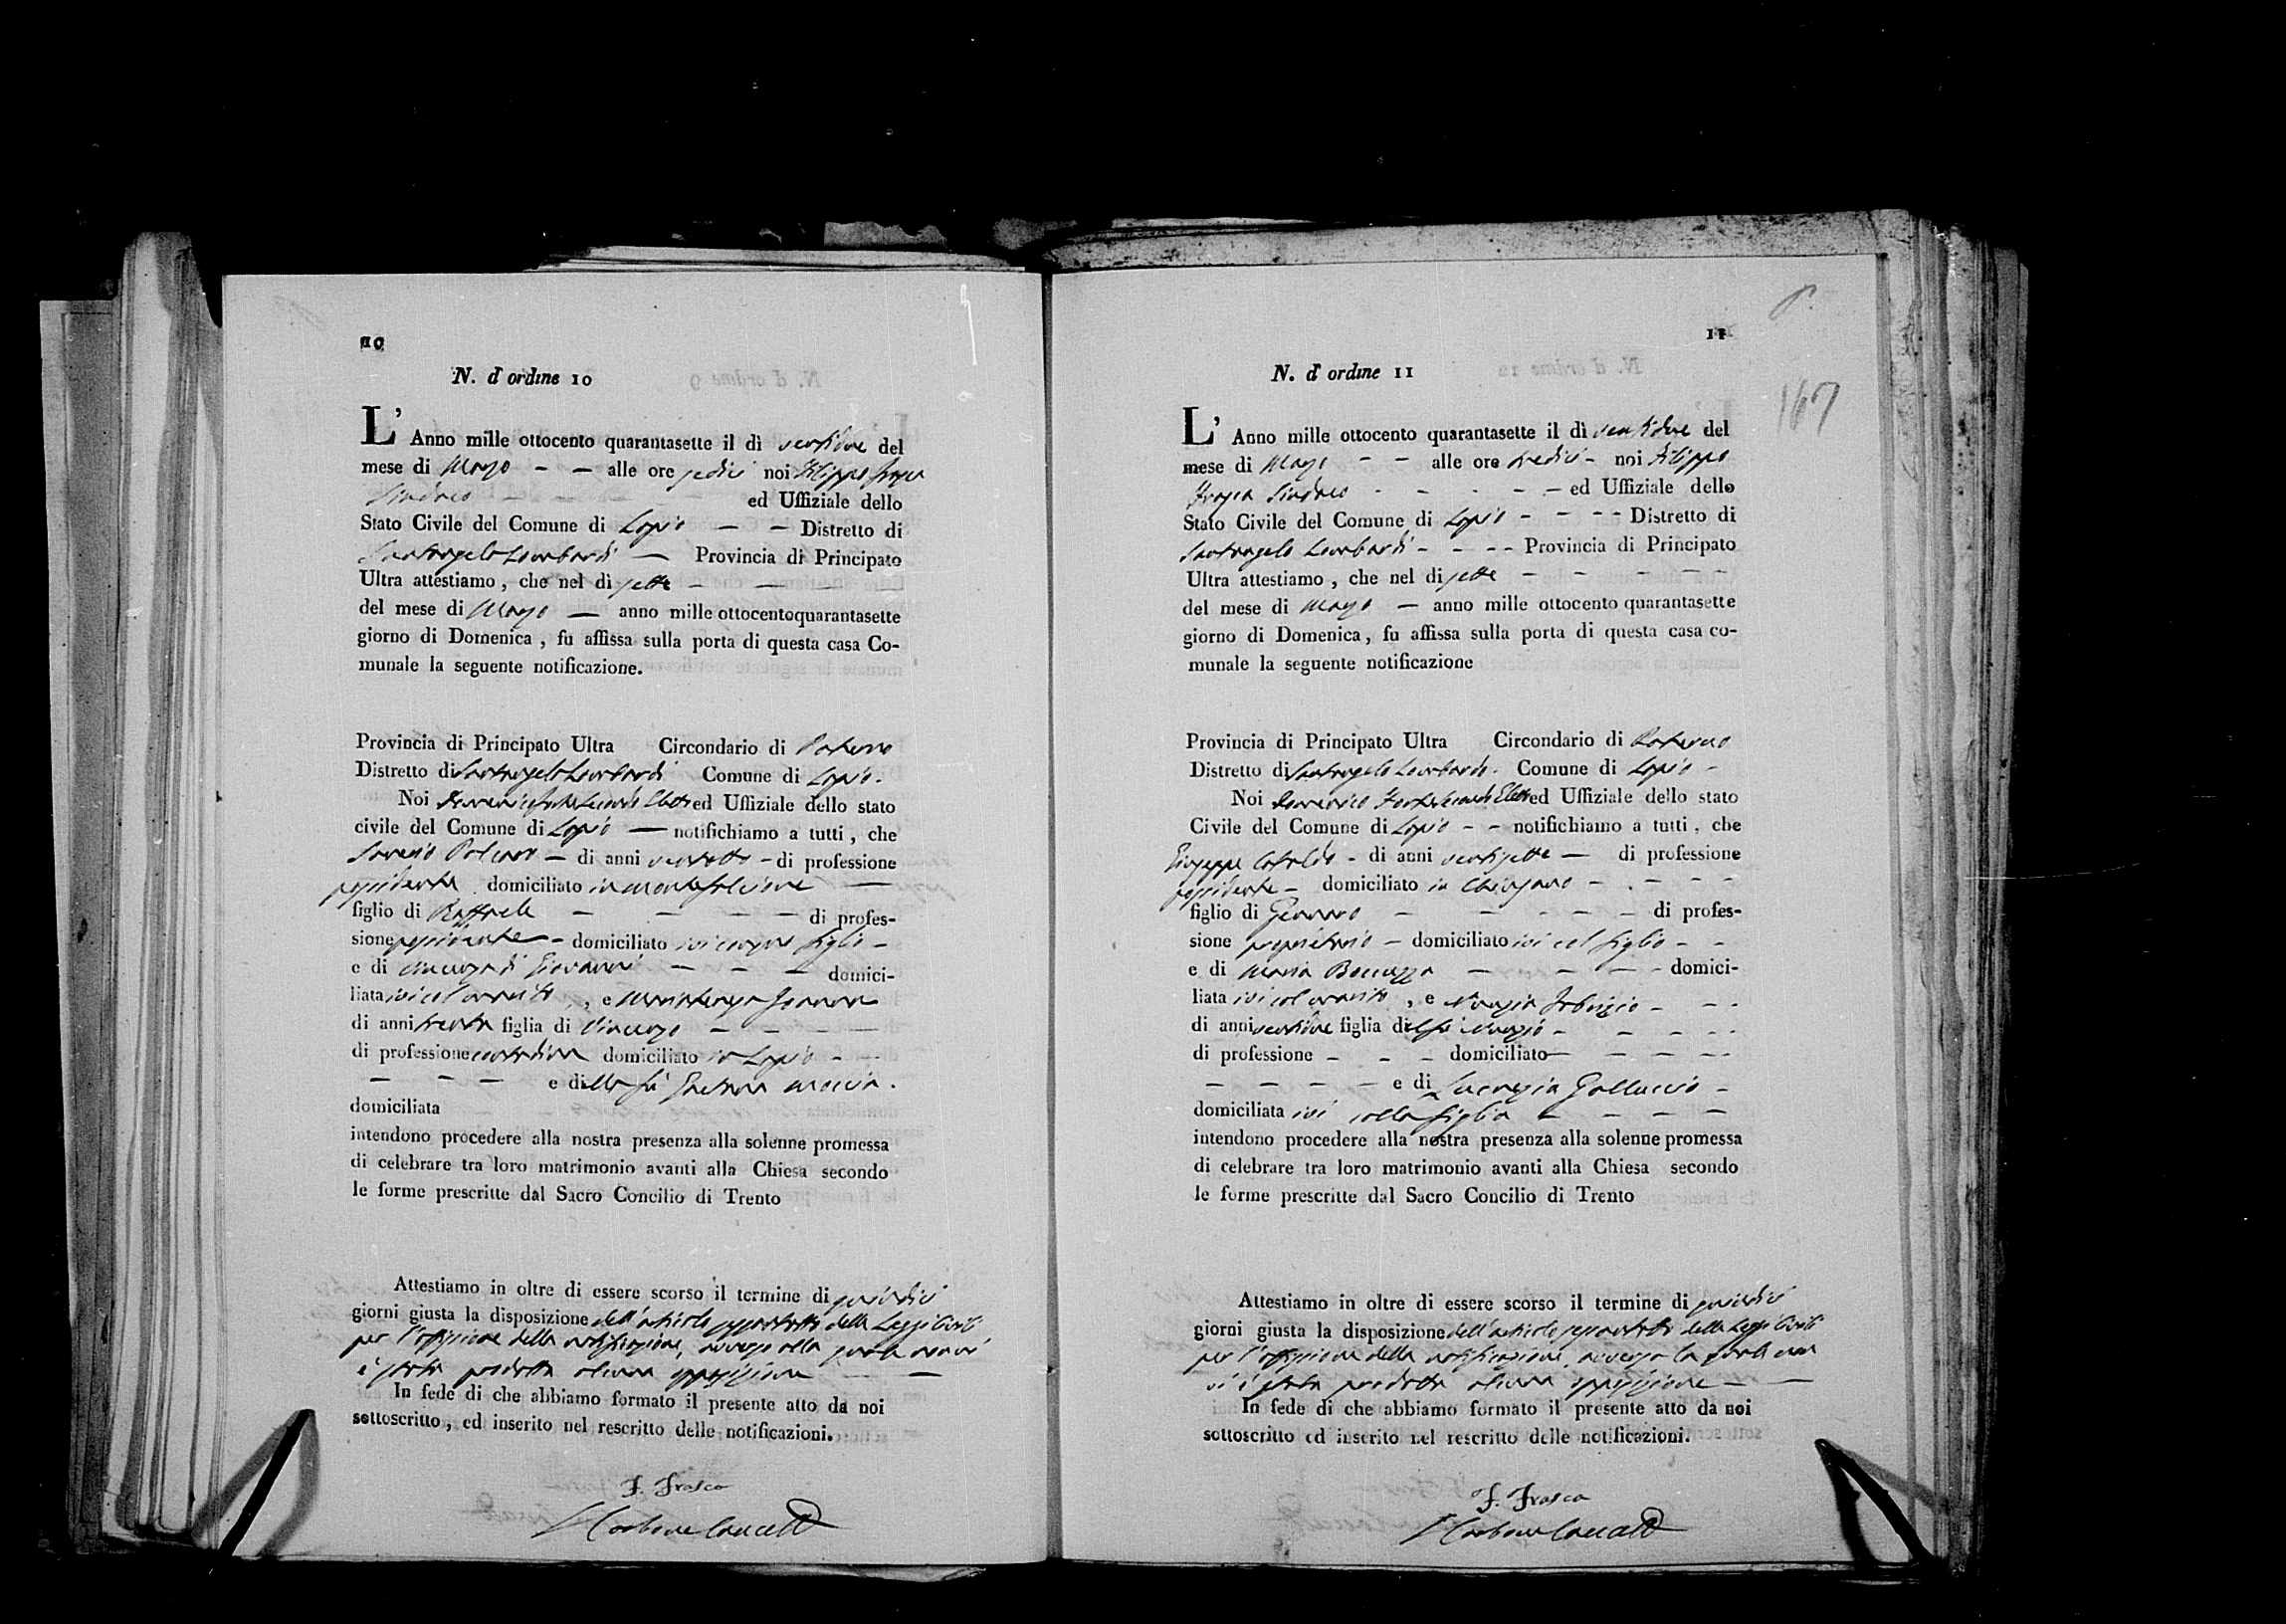 10
N. d'ordine 10
L' Anno mille ottocento quarantasette il dì ventidue del
mese di Mago — — alle ore sedici noi Filippo Frasca
Sindaco — — — — ed Uffiziale dello
Stato Civile del Comune di Lapio — — Distretto di
Santangelo Lombardi — Provincia di Principato
Ultra attestiamo , che nel dì sette — — —
del mese di Mago — anno mille ottocentoquarantasette
giorno di Domenica , fu affissa sulla porta di questa casa Co-
munale la seguente notificazione.
Provincia di Principato Ultra Circondario di Paterno
Distretto di Santangelo Lombardi Comune di Lapio.
Noi Domenico Forte Secondo Eletto ed Uffiziale dello stato
civile del Comune di Lapio — notifichiamo a tutti , che
Saverio Polcaro — di anni ventotto - di professione
possidente domiciliato in Montefalcione —
figlio di Raffaele — — — — di profes-
sione possidente - domiciliato ivi col figlio -
e di Vincenza di Giovanni — — — domici-
liata ivi col marito , e
di anni trenta figlia di Vincenzo — — — —
di professione contadina domiciliato in Lapio - -
— — — e di della fu Gaetana Moccia .
domiciliata
intendono procedere alla nostra presenza alla solenne promessa
di celebrare tra loro matrimonio avanti alla Chiesa secondo
le forme prescritte dal Sacro Concilio di Trento
Attestiamo in oltre di essere scorso il termine di quindici
giorni giusta la disposizione dell'articolo sessantotto delle Leggi Civili
per l'affissione della notificazione, avverso alla quale non vi
è stata prodotta alcuna opposizione — —
In fede di che abbiamo formato il presente atto da noi
sottoscritto , ed inserito nel rescritto delle notificazioni.
F. Frasca
11
167
N. d' ordine 11
L' Anno mille ottocento quarantasette il dì ventidue del
mese di Mago - - alle ore tredici - noi Filippo
Frasca Sindaco - - - - — ed Uffiziale dello
Stato Civile del Comune di Lapio - - - - Distretto di
Santangelo Lombardi - - - - Provincia di Principato
Ultra attestiamo , che nel dì sette — — — — —
del mese di Mago — anno mille ottocento quarantasette
giorno di Domenica, fu affissa sulla porta di questa casa co-
munale la seguente notificazione
Provincia di Principato Ultra Circondario di Paterno
Distretto di Santangelo Lombardi. Comune di Lapio -
Noi Domenico Forte Secondo Eletto ed Uffiziale dello stato
Civile del Comune di Lapio - - notifichiamo a tutti , che
Giuseppe Cataldo - di anni ventisette — di professione
possidente - domiciliato in Chiusano - - - -
figlio di Gennaro — — — — — di profes-
sione proprietario — domiciliato ivi col figlio - -
e di Maria Boccuzza — — — - domici-
liata ivi col marito , e Nunzia Fabrizio - - -
di anni ventidue figlia del fu Nunzio - — — - -
di professione - - — domiciliato — — — - -
— — — — e di Lucrezia Galluccio -
domiciliata ivi colla figlia — — — —
intendono procedere alla nostra presenza alla solenne promessa
di celebrare tra loro matrimonio avanti alla Chiesa secondo
le forme prescritte dal Sacro Concilio di Trento
Attestiamo in oltre di essere scorso il termine di quindici
giorni giusta la disposizione dell'articolo sessantotto delle Leggi Civili
per l'affissione della notificazione, avverso la quale non
vi è stata prodotta alcuna opposizione — —
In fede di che abbiamo formato il presente atto da noi
sottoscritto ed inserito nel rescritto delle notificazioni.
F. Frasca